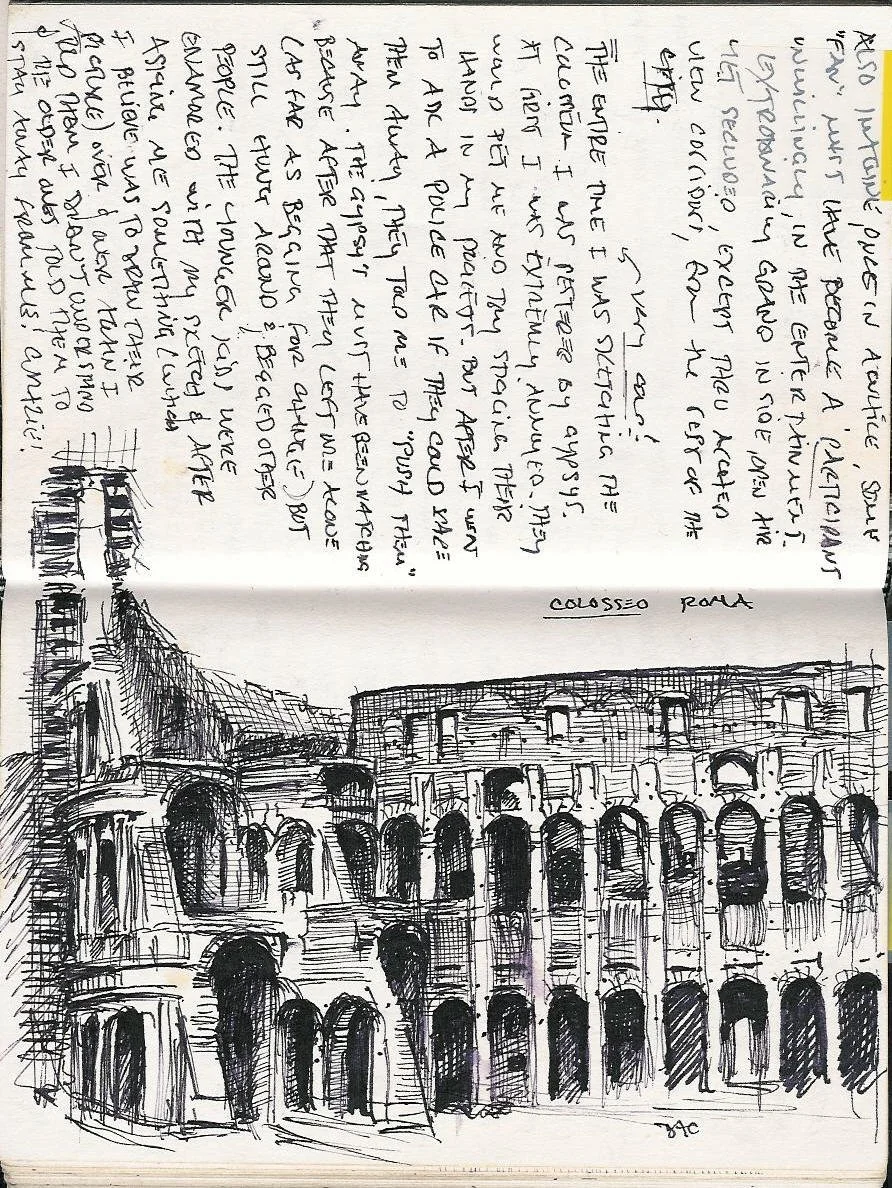 ALSO IMAGINE, ONCE IN A WHILE, SOME
"FAN" MUST HAVE BECOME A PARTICIPANT
UNWILLINGLY, IN THE ENTERTAINMENT.
EXTRODINARILY GRAND INSIDE, OPEN AIR
YET SECLUDED, EXCEPT THRU ARCHED
VIEW CORRIDORS, FROM THE REST OF THE
CITY
VERY COOL!
THE ENTIRE TIME I WAS SKETCHING THE
COLOSEUM I WAS PESTERED BY GYPSYS.
AT FIRST I WAS EXTREMLY ANNOYED. THEY
WOULD PET ME AND TRY STICKING THEIR
HANDS IN MY POCKETS. BUT AFTER I WENT
TO ASK A POLICE CAR IF THEY COULD SCARE
THEM AWAY, THEY TOLD ME TO "PUSH THEM"
AWAY. THE GYPSYS MUST HAVE BEEN WATCHING
BECAUSE AFTER THAT THEY LEFT ME ALONE
(AS FAR AS BEGGING FOR CHANGE) BUT
STILL HUNG AROUND & BEGGED OTHER
PEOPLE. THE YOUNGER KIDS WERE
ENAMORED WITH MY SKETCH & AFTER
ASKING ME SOMETHING (WHICH
I BELIEVE WAS TO DRAW THEIR
PICTURE) OVER & OVER AGAIN I
TOLD THEM I DIDN'T UNDERSTAND
& THE OLDER ONES TOLD THEM TO
STAY AWAY FROM ME! GRAZIE!
COLOSSEO ROMA